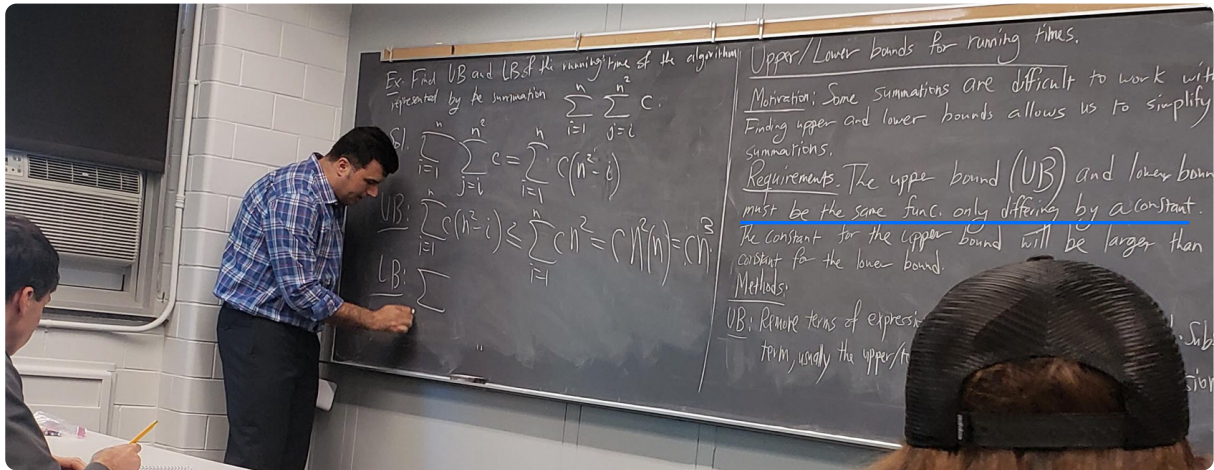 Ex. Find UB and LB of the running time of the algorithm
represented by be summation ∑_{i=1}^{n} ∑_{j=i}^{n²} c.
Sol. ∑_{i=1}^{n} ∑_{j=i}^{n²} c = ∑_{i=1}^{n} c(n²-i)
UB: ∑_{i=1}^{n} c(n²-i) ≤ ∑_{i=1}^{n} cn² = cn²(n) = cn³.
LB: ∑
Upper/Lower bounds for running times.
Motivation: Some summations are difficult to work
Finding upper and lower bounds allows us to simplify
summations.
Requirements. The upper bound (UB) and lower
must be the same func. only differing by a constant.
The constant for the upper bound will be larger than
constant for the lower bound.
Methods:
UB: Remove terms of
term, usually the